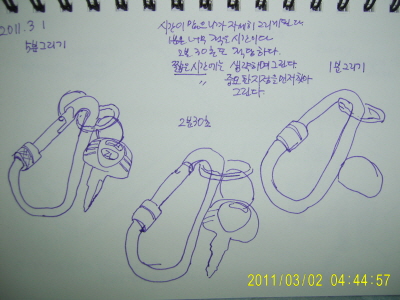 2011.3.1
5분그리기
시간이 있으니까 자세히 그리게 된다
1분은 너무 적은 시간이다
2분 30초도 적당하다.
짧은시간에는 생략하며그린다
〃 중요한지점을먼저찾아
그린다.
1분그리기
2분30초
2011/03/02 04:44:57